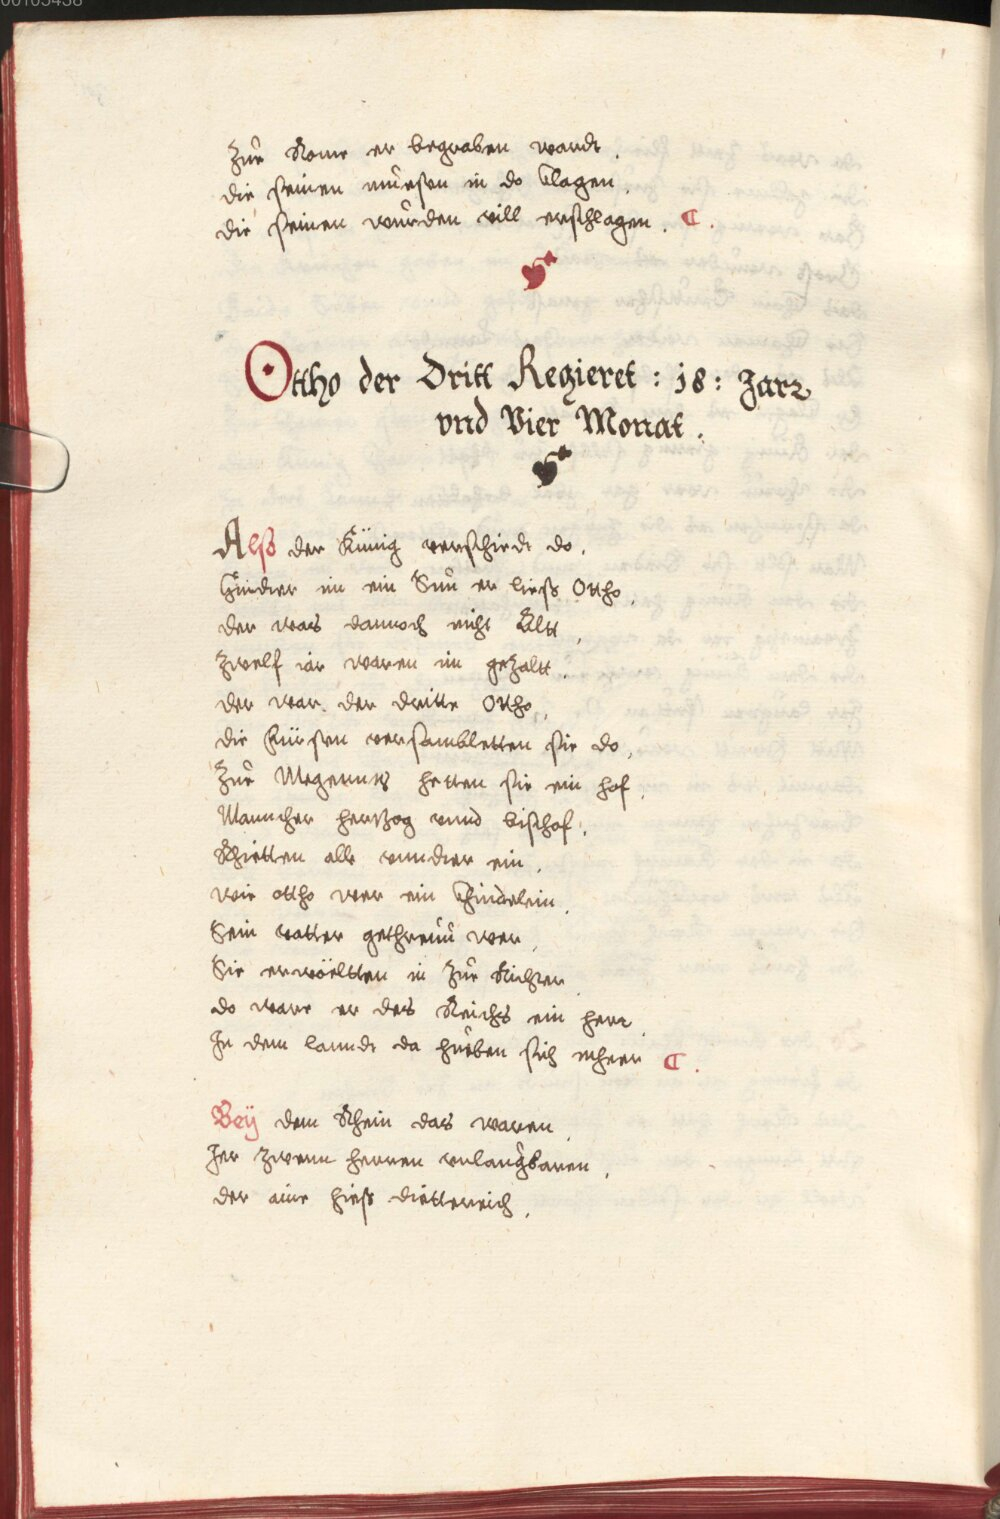 00103438
Zůr Rome er begraben wardt.
die seinen můesen in do klagen.
die seinen wůrden vill erschlagen. C.
Ottho der Dritt Regieret : 18 : Jarr
vnd Vier Monat.
Alß der Künig verschiedt do.
hinder im ein Sůn er ließ Ottho.
der was dannoch nicht Altt.
Zwelf iar waren im gezaltt.
der war der dritte Ottho.
die Fürsen versambletten sie do.
Zůr Megenntz hetten sie ein hof.
Mannicher hertzog vnnd bischof.
Rhietten alle vnnder ein.
wie ottho wer ein Khindelein.
Sein vatter gethreuů wer.
Sie erwöeltten in Zůr Richter.
do ware er des Reichs ein herr.
In dem lanndt da hůeben sich mheer C.
Beÿ dem Rhein das waren.
Jer zwenn herren vnlaůgbaren.
der aine hieß dietterreich.